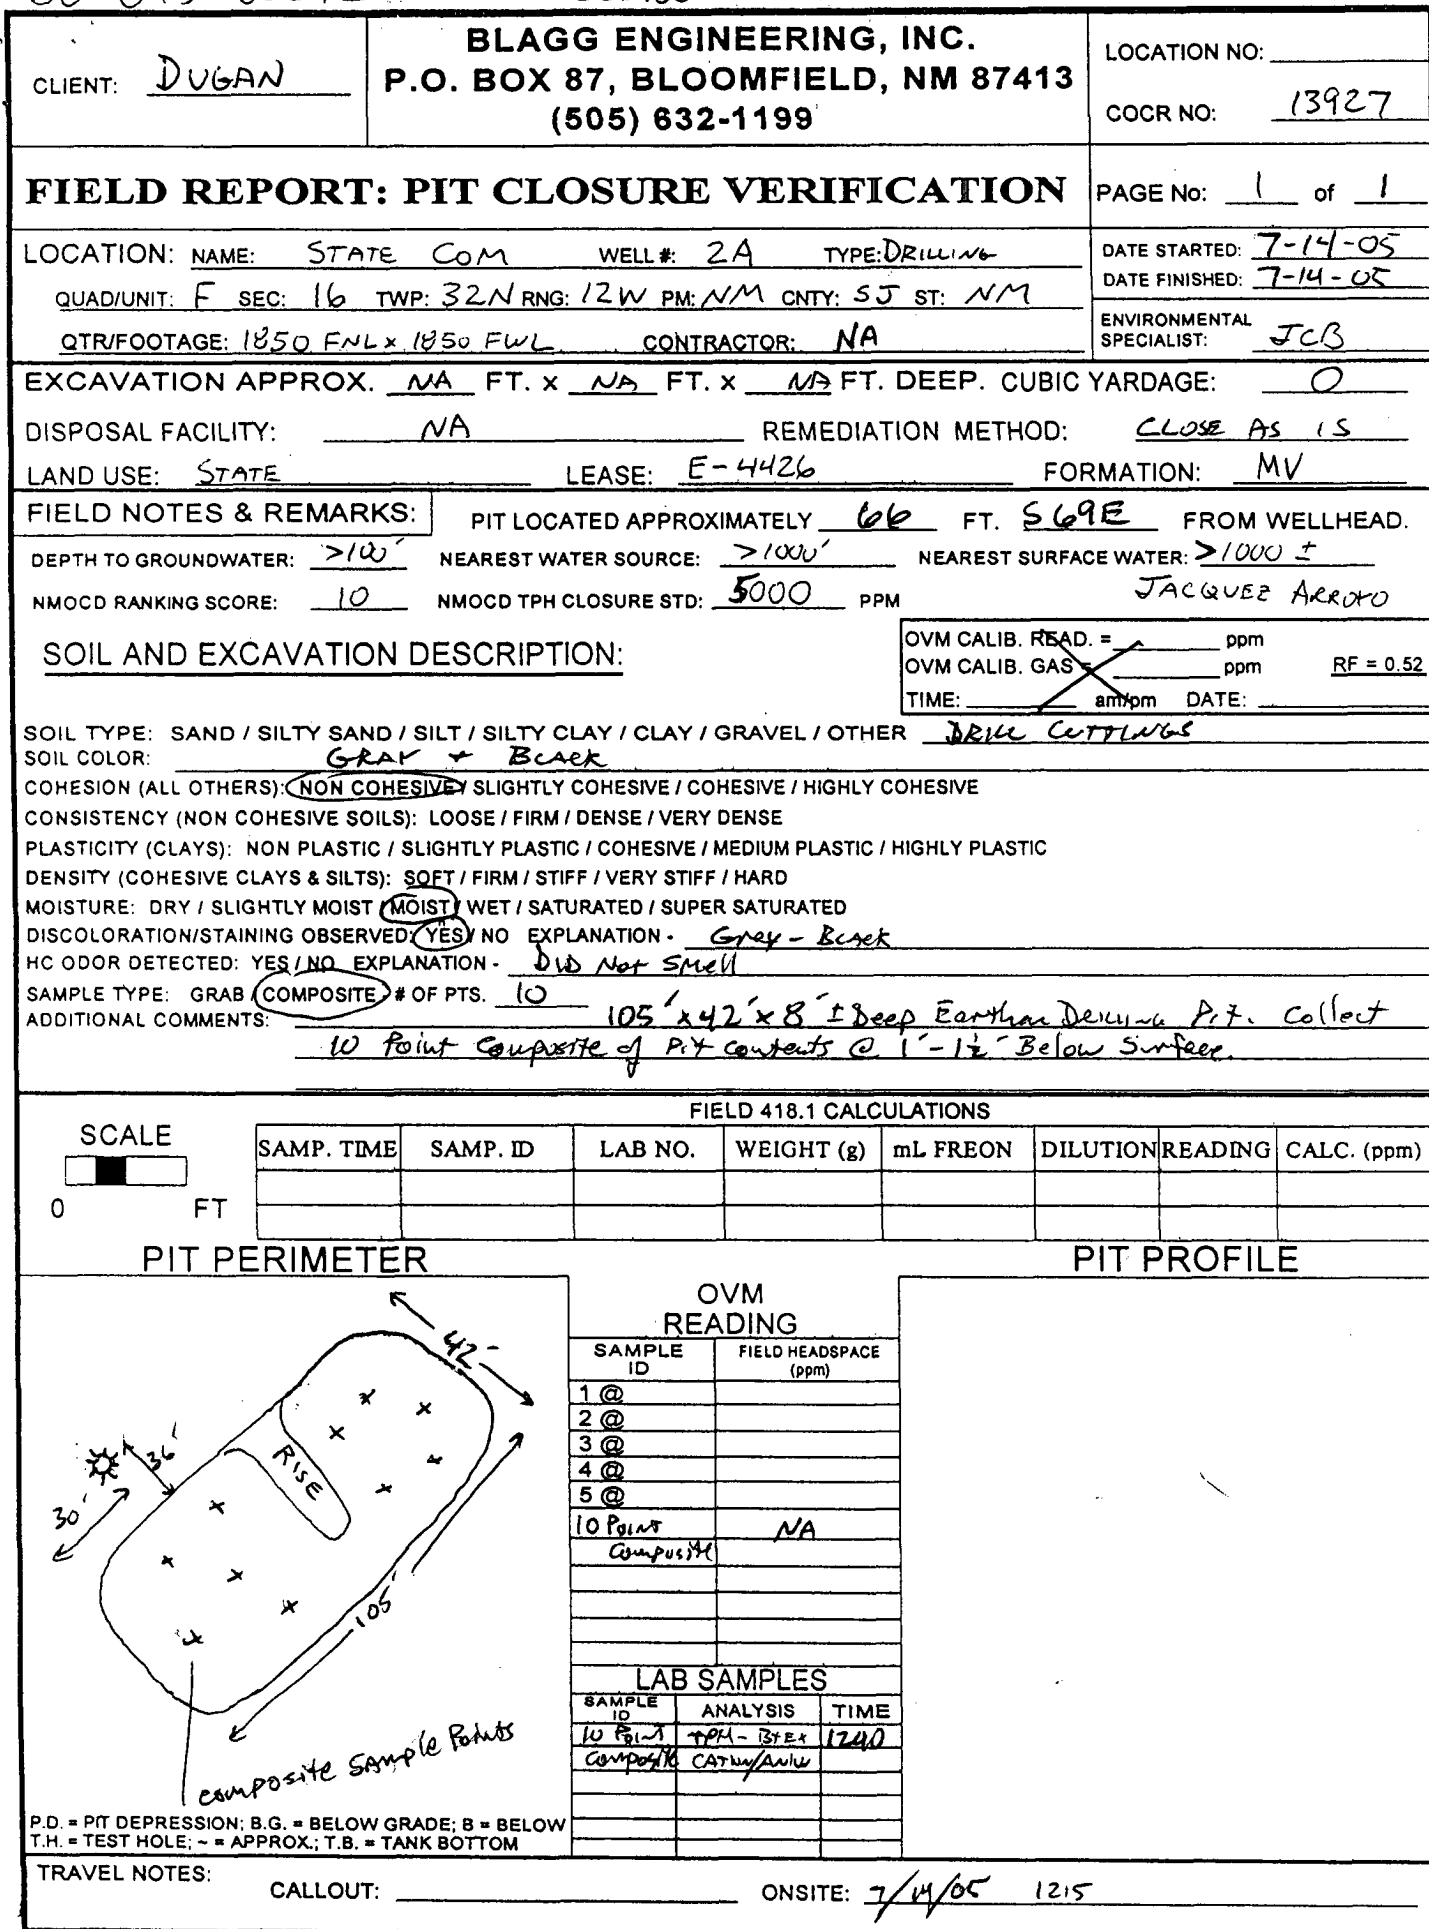 BLAGG ENGINEERING, INC.
P.O. BOX 87, BLOOMFIELD, NM 87413
(505) 632-1199
CLIENT: DUGAN
LOCATION NO:
COCR NO: 13927
FIELD REPORT: PIT CLOSURE VERIFICATION
PAGE No: 1 of 1
LOCATION: NAME: STATE COM WELL #: 2A TYPE: DRILLING
DATE STARTED: 7-14-05
DATE FINISHED: 7-14-05
QUAD/UNIT: F SEC: 16 TWP: 32N RNG: 12W PM: NM CNTY: SJ ST: NM
QTR/FOOTAGE: 1850 FNL x 1850 FWL CONTRACTOR: NA
ENVIRONMENTAL
SPECIALIST: JCB
EXCAVATION APPROX. NA FT. x NA FT. x NA FT. DEEP. CUBIC YARDAGE: 0
DISPOSAL FACILITY: NA REMEDIATION METHOD: CLOSE AS IS
LAND USE: STATE LEASE: E-4426 FORMATION: MV
FIELD NOTES & REMARKS: PIT LOCATED APPROXIMATELY 66 FT. S69E FROM WELLHEAD.
DEPTH TO GROUNDWATER: >100' NEAREST WATER SOURCE: >1000' NEAREST SURFACE WATER: >1000 ±
NMOCD RANKING SCORE: 10 NMOCD TPH CLOSURE STD: 5000 PPM JACQUEZ ARROYO
SOIL AND EXCAVATION DESCRIPTION:
OVM CALIB. READ. = ppm
OVM CALIB. GAS = ppm RF = 0.52
TIME: am/pm DATE:
SOIL TYPE: SAND / SILTY SAND / SILT / SILTY CLAY / CLAY / GRAVEL / OTHER DRILL CUTTINGS
SOIL COLOR: GRAY + BLACK
COHESION (ALL OTHERS): NON COHESIVE / SLIGHTLY COHESIVE / COHESIVE / HIGHLY COHESIVE
CONSISTENCY (NON COHESIVE SOILS): LOOSE / FIRM / DENSE / VERY DENSE
PLASTICITY (CLAYS): NON PLASTIC / SLIGHTLY PLASTIC / COHESIVE / MEDIUM PLASTIC / HIGHLY PLASTIC
DENSITY (COHESIVE CLAYS & SILTS): SOFT / FIRM / STIFF / VERY STIFF / HARD
MOISTURE: DRY / SLIGHTLY MOIST / MOIST / WET / SATURATED / SUPER SATURATED
DISCOLORATION/STAINING OBSERVED: YES / NO EXPLANATION - Gray - Black
HC ODOR DETECTED: YES / NO EXPLANATION - DID Not Smell
SAMPLE TYPE: GRAB / COMPOSITE # OF PTS. 10
ADDITIONAL COMMENTS: 105' x 42' x 8' ± Deep Earthen Drilling Pit. Collect
10 Point Composite of Pit Contents @ 1' - 1½' Below Surface.
FIELD 418.1 CALCULATIONS
SCALE
0 FT
SAMP. TIME SAMP. ID LAB NO. WEIGHT (g) mL FREON DILUTION READING CALC. (ppm)
PIT PERIMETER
PIT PROFILE
42'
RISE
36'
30'
105'
composite Sample Points
OVM
READING
SAMPLE ID FIELD HEADSPACE (ppm)
1 @
2 @
3 @
4 @
5 @
10 Point NA
Composite
LAB SAMPLES
SAMPLE ID ANALYSIS TIME
10 Point TPH - BTEX 1240
Composite CATION/ANION
P.D. = PIT DEPRESSION; B.G. = BELOW GRADE; B = BELOW
T.H. = TEST HOLE; ~ = APPROX.; T.B. = TANK BOTTOM
TRAVEL NOTES:
CALLOUT: ONSITE: 7/14/05 1215